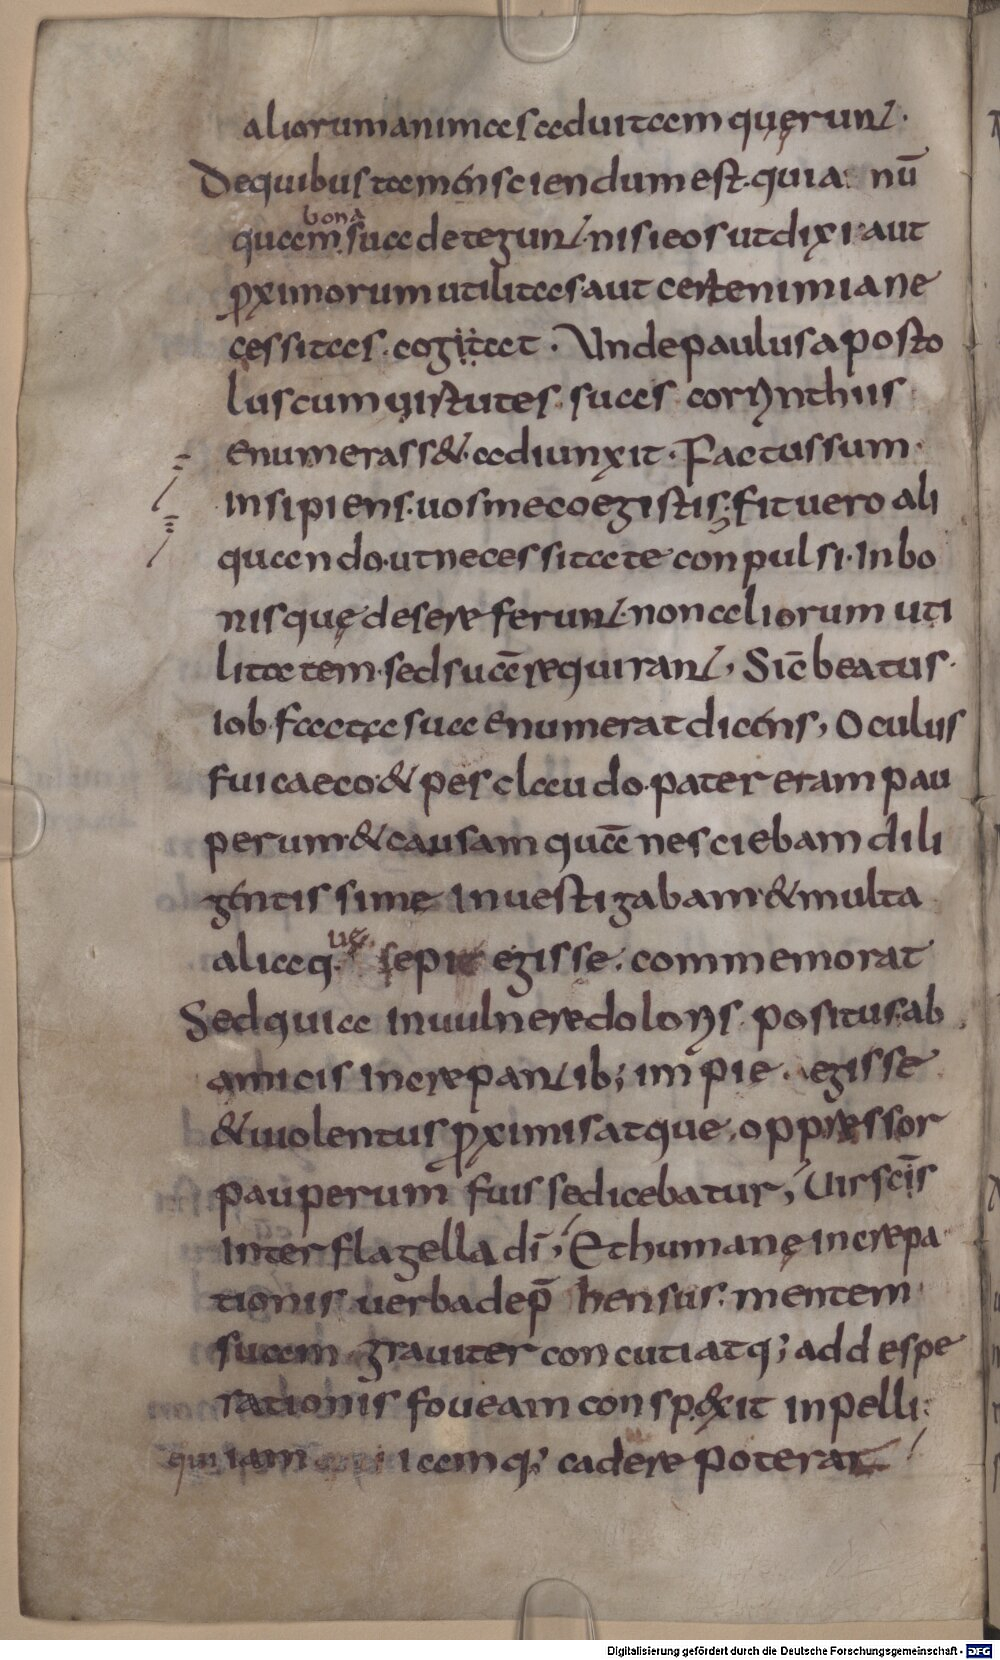 aliorum animas ad uitam quęrunt.
De quibus tamen sciendum est. quia nū
bona
quam sua detegunt. nisi eos ut dixi aut
ꝓximorum utilitas. aut certe nimia ne
cessitas. cogitat. Unde paulus aposto
lus cum uirtutes suas corynthiis
enumerass&. adiunxit. Factus sum
insipiens. uos me coegistis; fit uero ali
quando. ut necessitate conpulsi. In bo
nis quę de se referunt. non aliorum uti
litatem. sed suā requirant, Sic̄ beatus
iob. facta sua enumerat dicens, Oculus
fui caeco. & pes claudo. pater eram pau
perum. & causam quā nesciebam dili
gentissime inuestigabam. & multa
uę
aliaq. sepie egisse. commemorat
Sed quia in uulnere dolorys positus. ab
amicis increpantib; impie egisse
& uiolentus ꝓximis atque oppressor
pauperum fuisse dicebatur, Uir scīs
Inter flagella dī, Et humanę increpa
tionis uerba dep̄hensus. mentem
suam grauiter concuti atq; ad despe
rationis foueam consp&xit inpelli.
qui iam iamq; cadere poterat
Digitalisierung gefördert durch die Deutsche Forschungsgemeinschaft - DFG